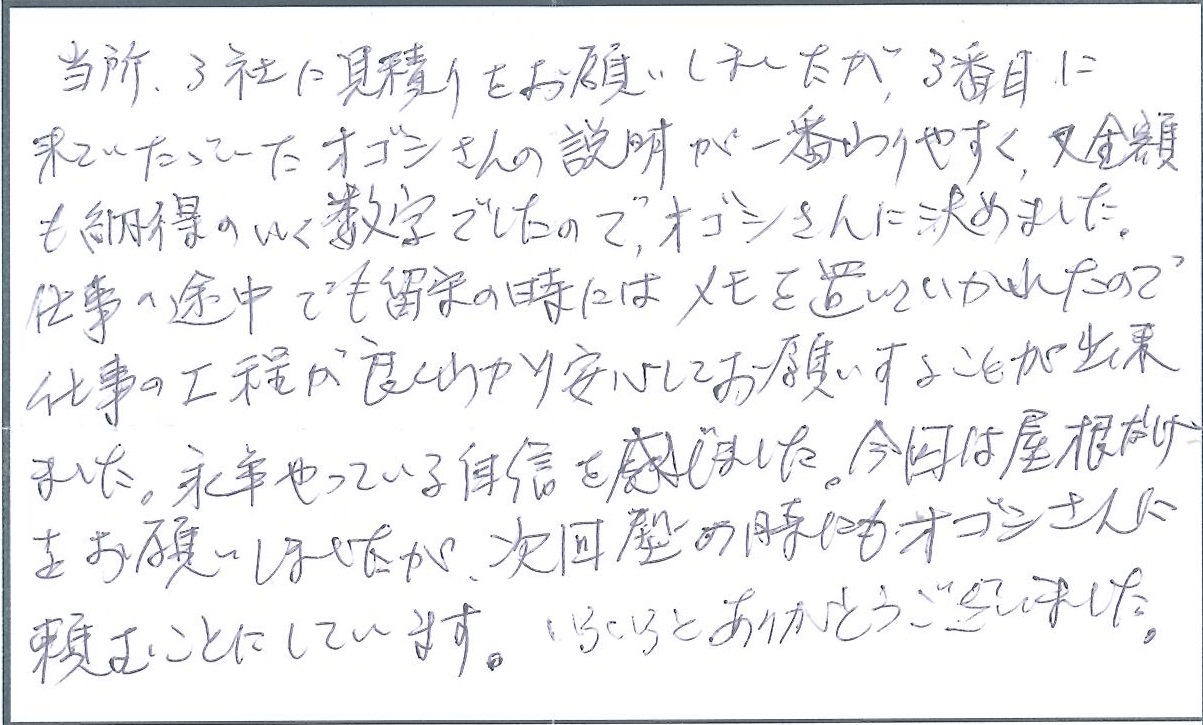 当所、3社に見積りをお願いしましたが、3番目に
来ていたっていたオゴシさんの説明が一番わりやすく、又金額
も納得のいく数字でしたので、オゴシさんに決めました。
仕事の途中でも留守の時にはメモを置いていかれたので
仕事の工程が良くわかり安心してお願いすることが出来
ました。永年やっている自信を感じました。今回は屋根だけ
をお願いしましたが、次回壁の時にもオゴシさんに
頼むことにしています。いろいろとありがとうございました。